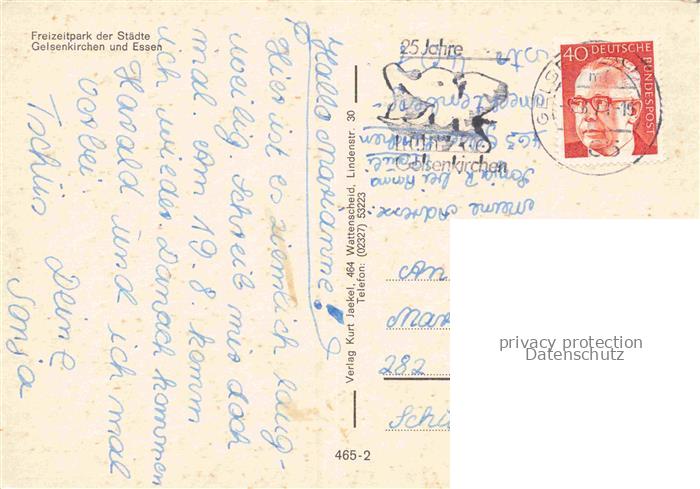 Freizeitpark der Städte
Gelsenkirchen und Essen
Hallo Marianne!
Hier ist es ziemlich lang-
weilig. Schreib mir doch
mal. Am 19.8. komm
ich wieder. Danach kommen
Harald und ich mal
vorbei.
Tschüs
Deine
Sonja
Verlag Kurt Jaekel, 464 Wattenscheid, Lindenstr. 30
Telefon: (02327) 53223
465-2
25 Jahre
Gelsenkirchen
40 DEUTSCHE
BUNDESPOST
Meine Adresse:
Sonja R. bei
An
Mar
282
Schi
privacy protection
Datenschutz